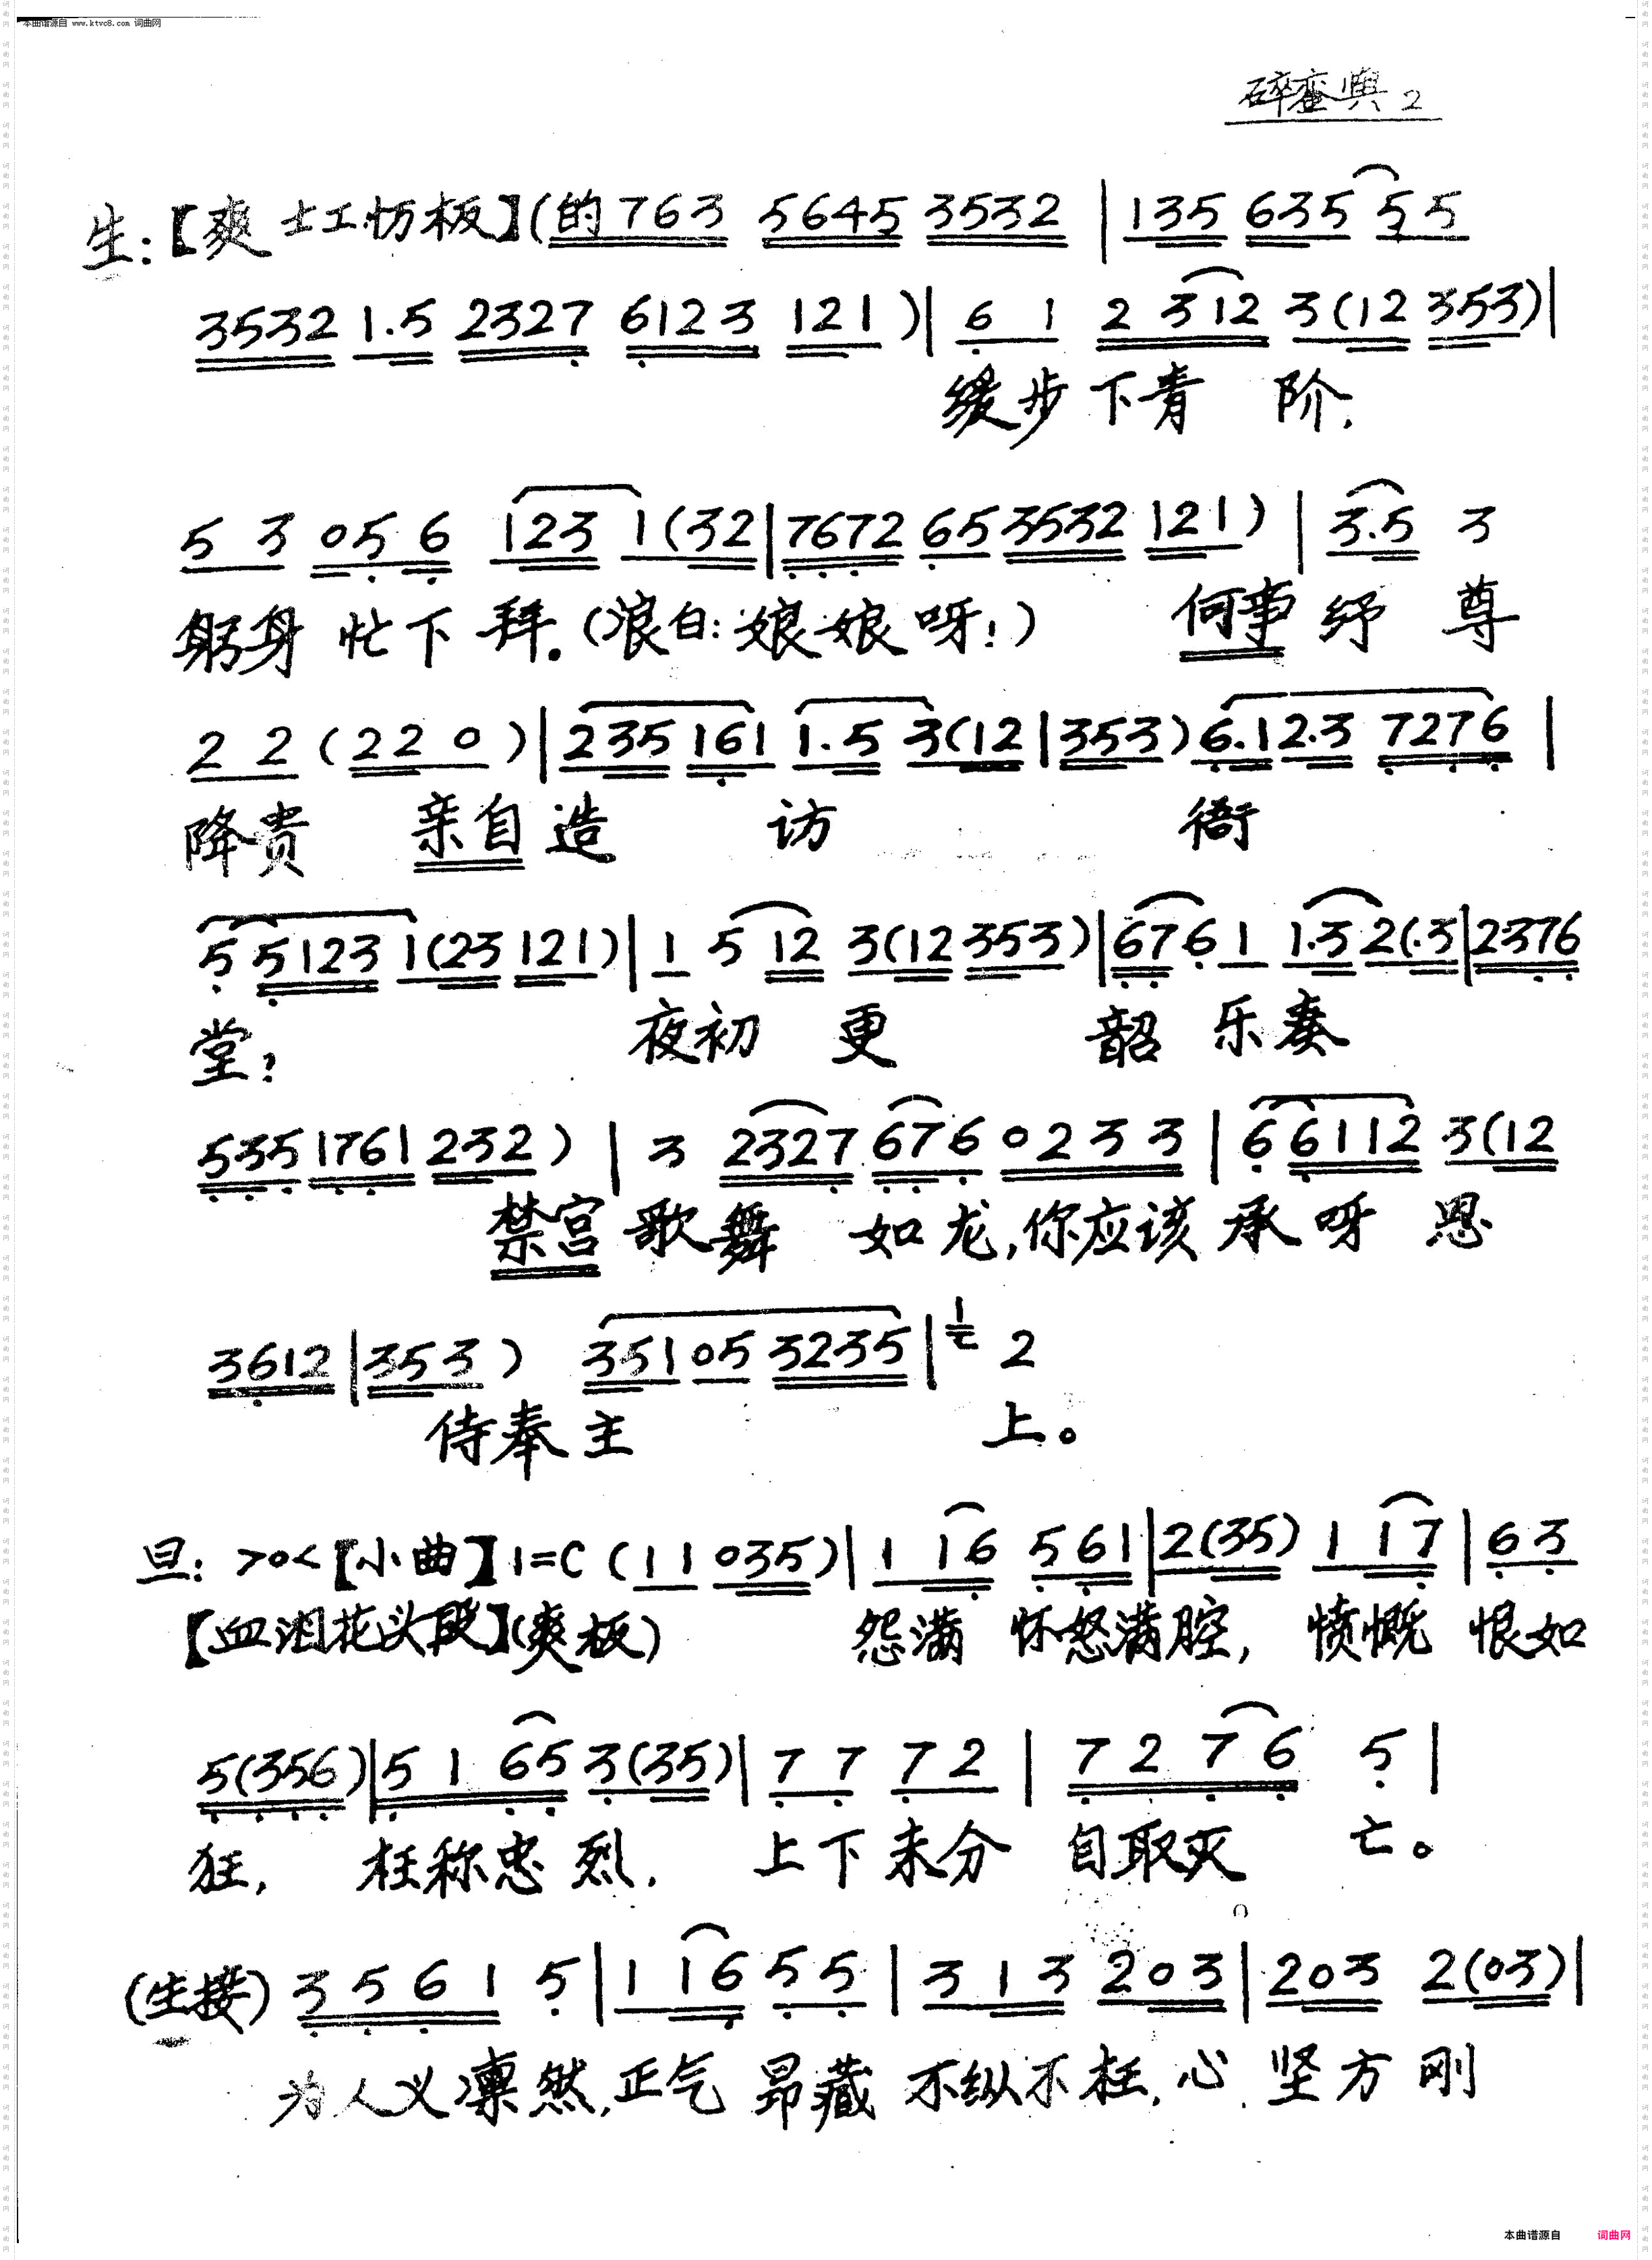 本曲谱源自 www.ktvc8.com 词曲网
碎銮舆 2
生:【爽士工忉板】(的763 5645 3532 | 135 635 5 5
3532 1.5 2327 6123 121 ) | 6 1 2 312 3(12 353) |
缓步下青 阶,
5 3 05 6 123 1(32 | 7672 65 3532 121 ) | 3.5 3
躬身 忙下 拜。(浪白:娘娘呀!) 何事 纡 尊
2 2 ( 22 0 ) | 235 161 1.5 3(12 | 353 ) 6.12.3 7276 |
降贵 亲自 造 访 衙
5 5123 1(23 121) | 1 5 12 3(12 353) | 676 1 1.3 2(.3 | 2376
堂? 夜初 更 韶 乐奏
535 1761 232 ) | 3 2327 676 0233 | 6 6112 3(12
禁宫 歌舞 如龙,你应该 承呀 恩
3612 | 353 ) 351 05 3235 | 2
侍奉主 上。
旦: >0<【小曲】1=C ( 11 035 ) | 1 16 561 | 2(35) 1 17 | 63
【血泪花头段】(爽板) 怨满 怀怒满腔, 愤慨 恨如
5(356) | 51 65 3(35) | 7 7 7 2 | 7 2 7 6 5 |
狂, 枉称忠 烈, 上下未分 自取灭 亡。
(生接) 3561 5 | 1 16 5 5 | 3 13 203 | 203 2(03) |
为人义凛然,正气 昂藏 不纵不枉,心 坚方 刚
本曲谱源自 词曲网